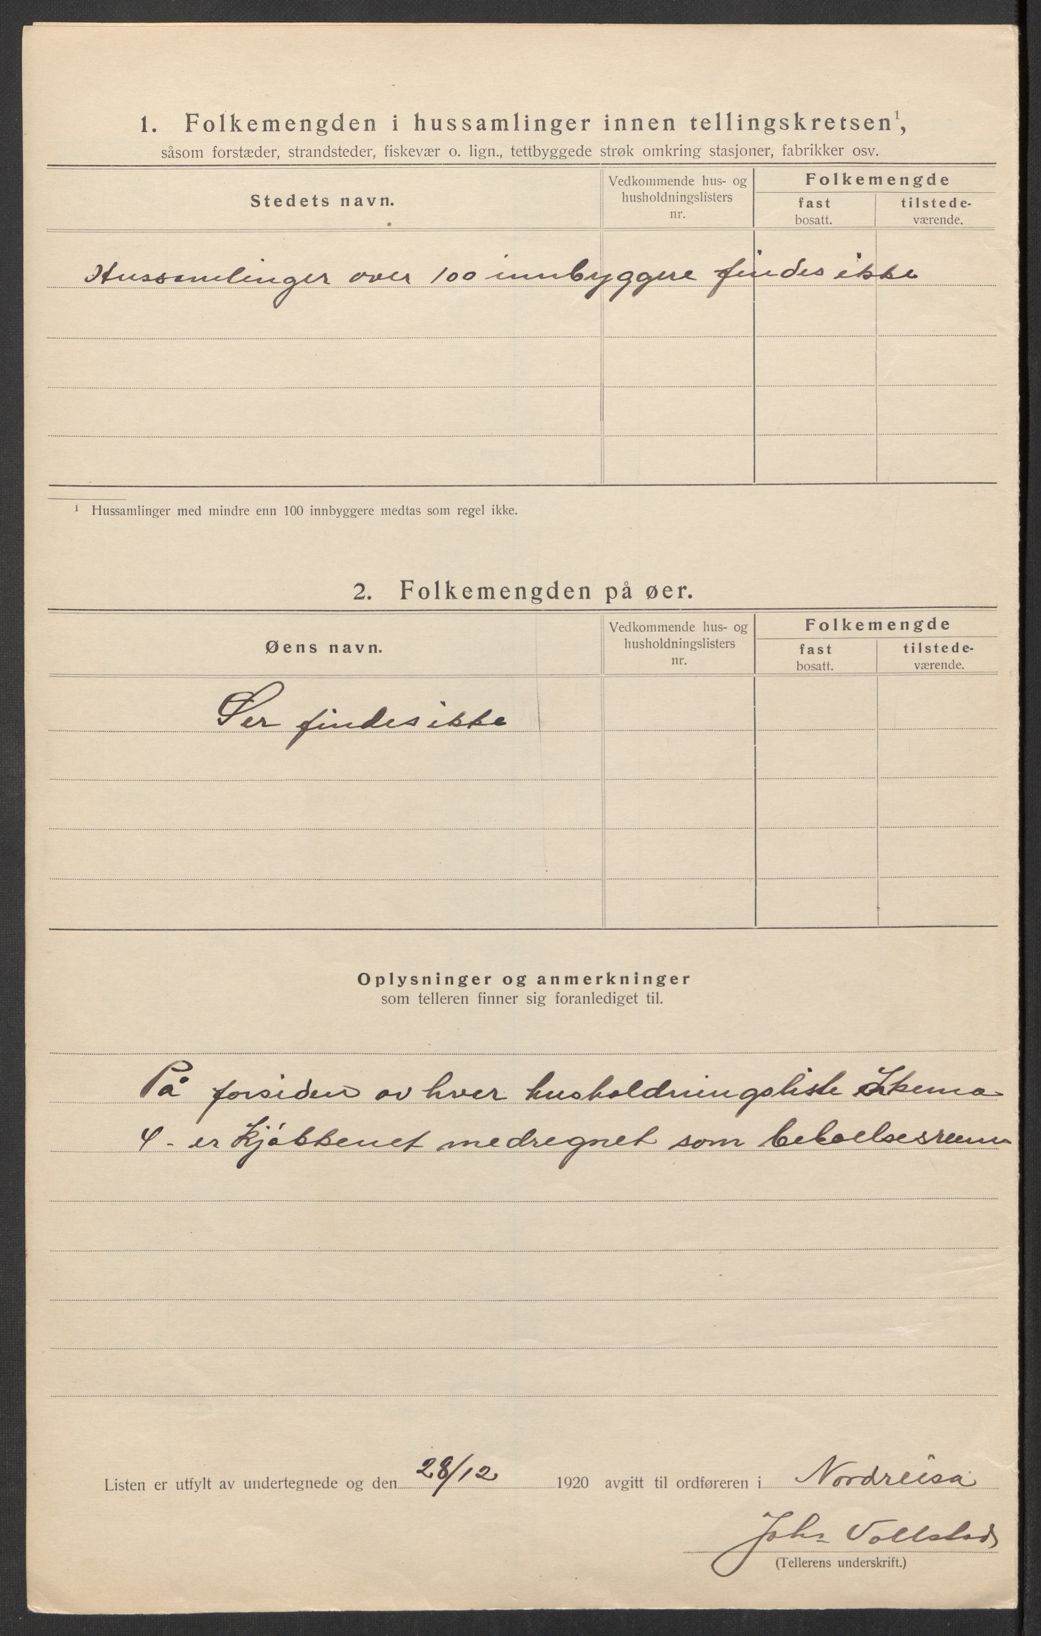 1. Folkemengden i hussamlinger innen tellingskretsen¹,
såsom forstæder, strandsteder, fiskevær o. lign., tettbyggede strøk omkring stasjoner, fabrikker osv.
Stedets navn.
Vedkommende hus- og
husholdningslisters
nr.
Folkemengde
fast
bosatt.
tilstede-
værende.
Hussamlinger over 100 innbyggere findes ikke
¹ Hussamlinger med mindre enn 100 innbyggere medtas som regel ikke.
2. Folkemengden på øer.
Øens navn.
Vedkommende hus- og
husholdningslisters
nr.
Folkemengde
fast
bosatt.
tilstede-
værende.
Øer findes ikke
Oplysninger og anmerkninger
som telleren finner sig foranlediget til.
På forsiden av hver husholdningsliste Skema
4 - er kjøkkenet medregnet som beboelsesrum
Listen er utfylt av undertegnede og den 28/12 1920 avgitt til ordføreren i Nordreisa
Johs Vollstad
(Tellerens underskrift.)